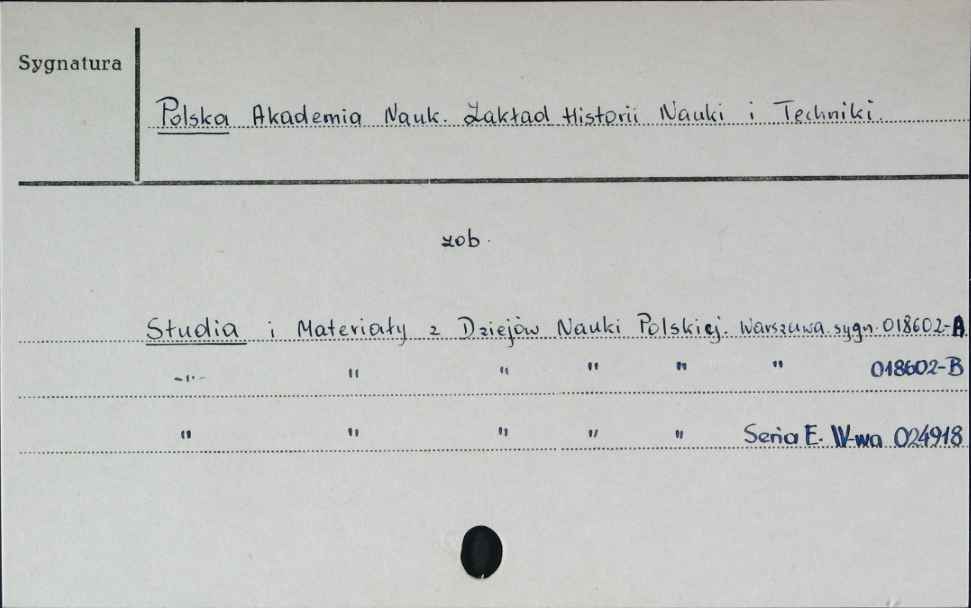 Sygnatura
Polska Akademia Nauk. Zakład Historii Nauki i Techniki.
zob.
Studia i Materiały z Dziejów Nauki Polskiej. Warszawa. sygn. 018602-A
-"- " " " " " 018602-B
" " " " " Seria E. W-wa 024918